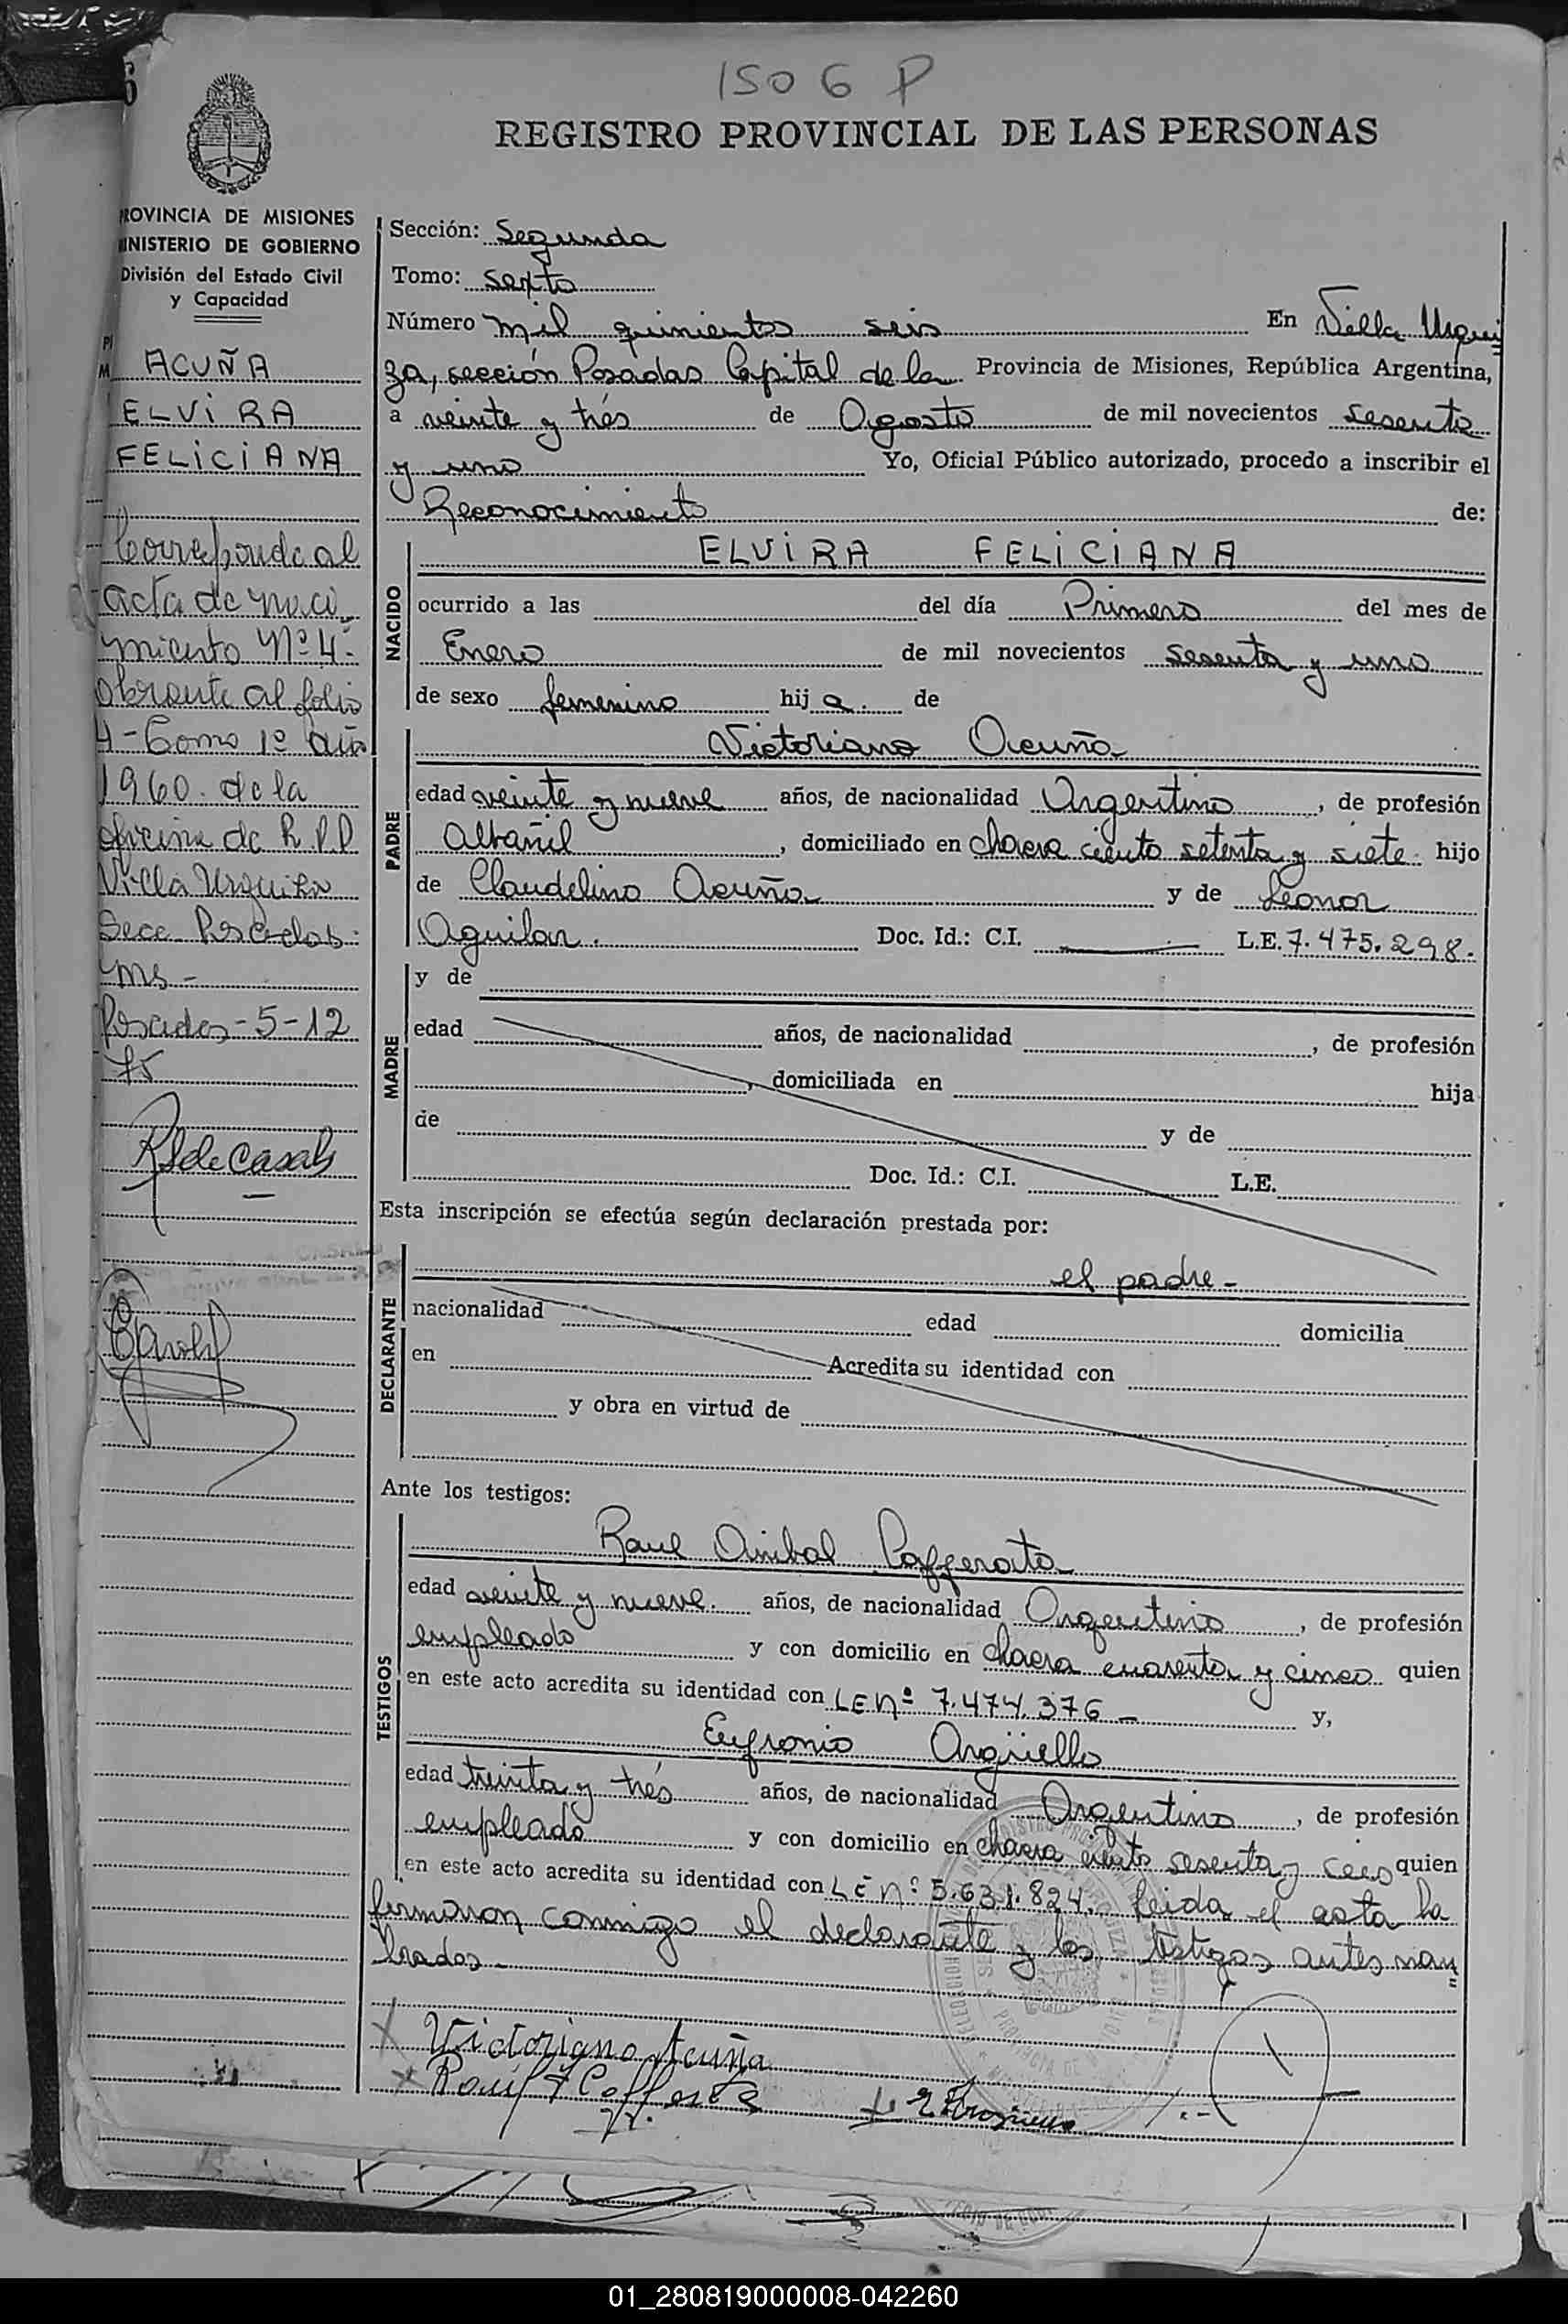 1506 P
REGISTRO PROVINCIAL DE LAS PERSONAS
PROVINCIA DE MISIONES
MINISTERIO DE GOBIERNO
División del Estado Civil
y Capacidad
ACUÑA
ELVIRA
FELICIANA
Corresponde al
acta de naci
miento Nº 4-
obrante al folio
4- Tomo 1º año
1960. de la
oficina de R.P.P
Villa Urquiza
Secc Posadas-
Ms-
Posadas-5-12
75
Sección: Segunda
Tomo: sexto
Número mil quinientos seis En Villa Urqui
za, sección Posadas Capital de la Provincia de Misiones, República Argentina,
a veinte y trés de Agosto de mil novecientos sesenta
y uno Yo, Oficial Público autorizado, procedo a inscribir el
Reconocimiento de:
NACIDO
ELVIRA FELICIANA
ocurrido a las del día Primero del mes de
Enero de mil novecientos sesenta y uno
de sexo femenino hija de
PADRE
Victoriano Acuña
edad veinte y nueve años, de nacionalidad Argentino, de profesión
Albañil, domiciliado en chacra ciento setenta y siete hijo
de Claudelino Acuña y de Leonor
Aguilar. Doc. Id.: C.I. L.E. 7.475.298.
MADRE
y de
edad años, de nacionalidad , de profesión
, domiciliada en hija
de y de
Doc. Id.: C.I. L.E.
Esta inscripción se efectúa según declaración prestada por:
DECLARANTE
el padre-
nacionalidad edad domicilia
en Acredita su identidad con
y obra en virtud de
Ante los testigos:
TESTIGOS
Raul Anibal Cafferata
edad veinte y nueve. años, de nacionalidad Argentino, de profesión
empleado y con domicilio en chacra cuarenta y cinco quien
en este acto acredita su identidad con LE nº 7.474.376 - y,
Eufronio Argüello
edad treinta y trés años, de nacionalidad Argentino, de profesión
empleado y con domicilio en chacra ciento sesenta y quien
en este acto acredita su identidad con LE nº 5.631.824. Leida el acta la
firmaron conmigo el declarante y los testigos antes nom
brados-
Victoriano Acuña
01_280819000008-042260